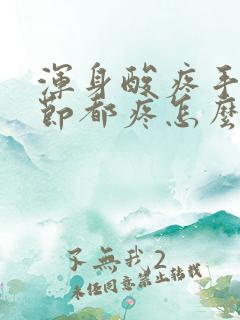 渾身酸疼手
節都疼怎麼
不無我2
未經同意禁止轉載